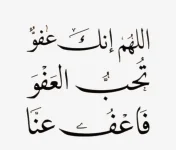 اللهُم إنكَ عَفوٌ
تُحبُّ العَفْوَ
فَاعْفُ عنَّا